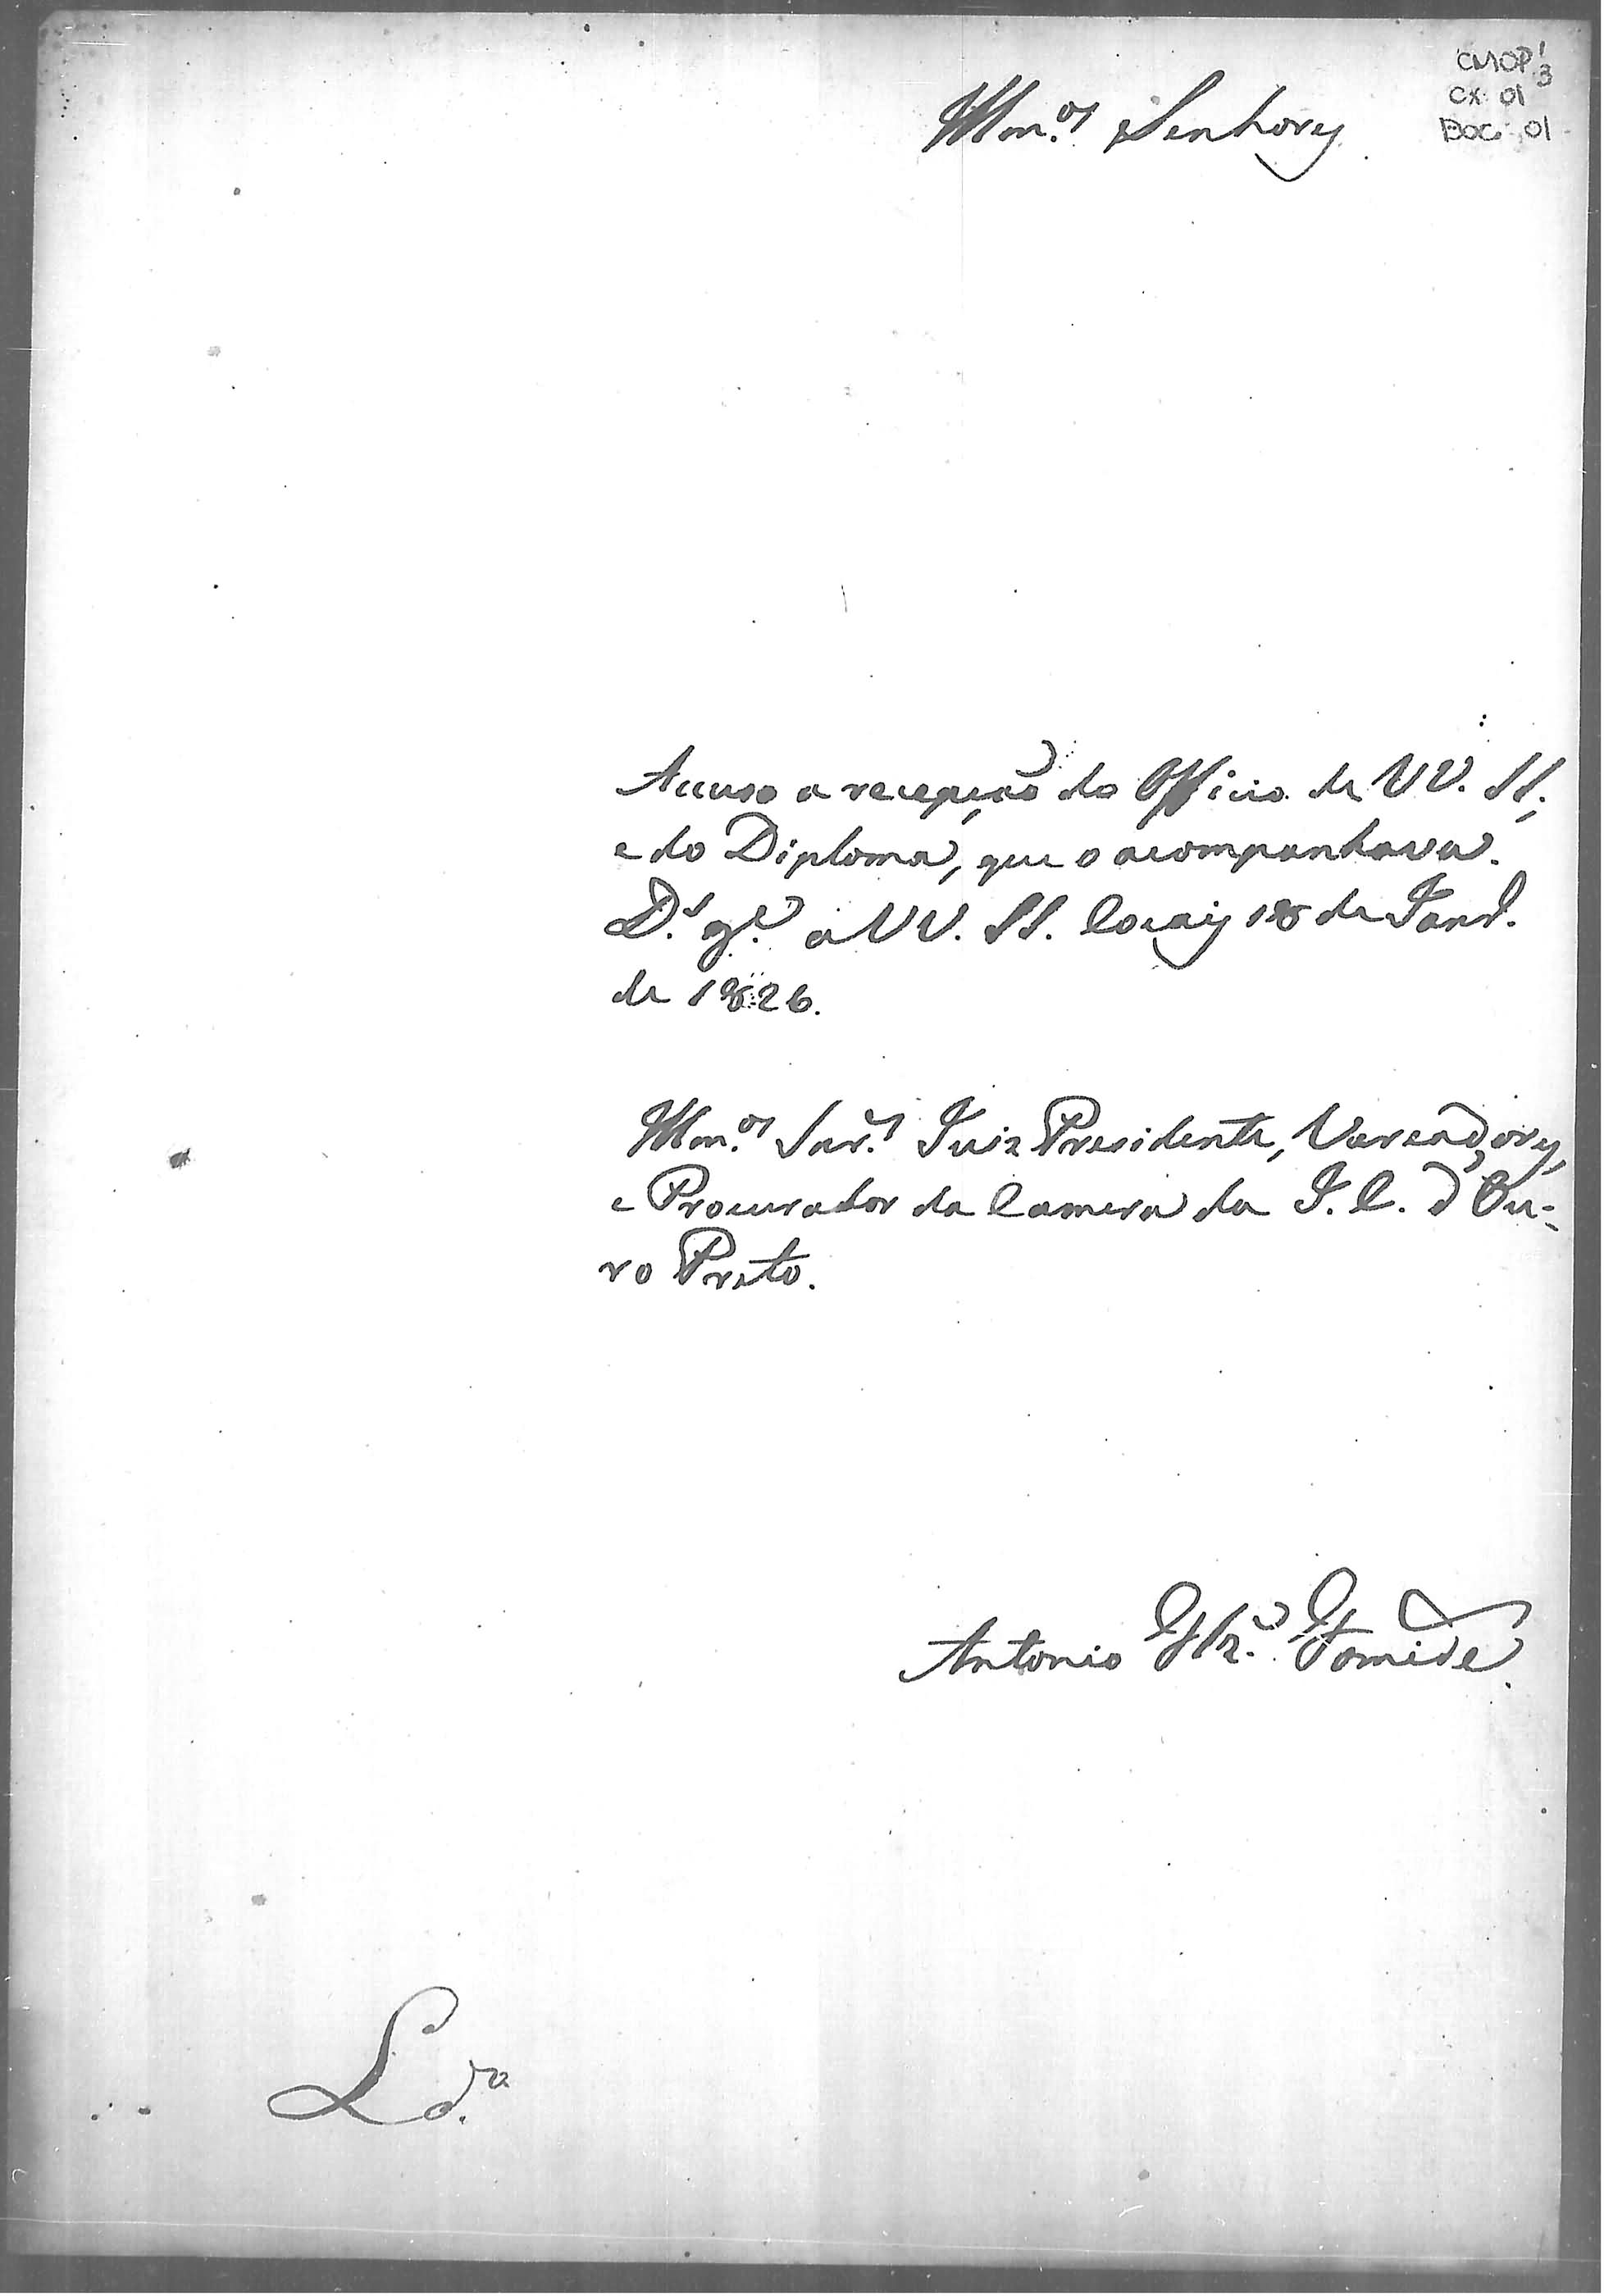 CMOP 1/3
CX. 01
DOC. 01
Illm.os Senhores
Accuso a recepção do Officio de VV. SS.,
e do Diploma, que o acompanhava.
D.s g.e a VV. SS. Cocaiy 18 de Jan.
de 1826.
Illm.os Snr.es Juiz Presidente, Vereadores,
e Procurador da Camera da I. C. d'Ou-
ro Preto.
Antonio Glz.' Gomide